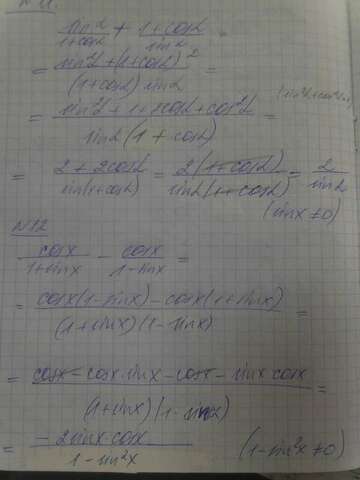 N 11.
sinα/(1+cosα) + (1+cosα)/sinα =
= (sin²α+(1+cosα)²)/((1+cosα) sinα) =
= (sin²α+1+2cosα+cos²α)/(sinα(1+cosα)) =
= (2+2cosα)/(sin(1+cosα)) = 2(1+cosα)/(sinα(1+cosα)) = 2/sinα
(sinx≠0)
N12
cosx/(1+sinx) - cosx/(1-sinx) =
= (cosx(1-sinx)-cosx(1+sinx))/((1+sinx)(1-sinx)) =
= (cosx-cosx·sinx-cosx-sinx cosx)/((1+sinx)(1-sinx)) =
= (-2sinx·cosx)/(1-sin²x) (1-sin²x≠0)